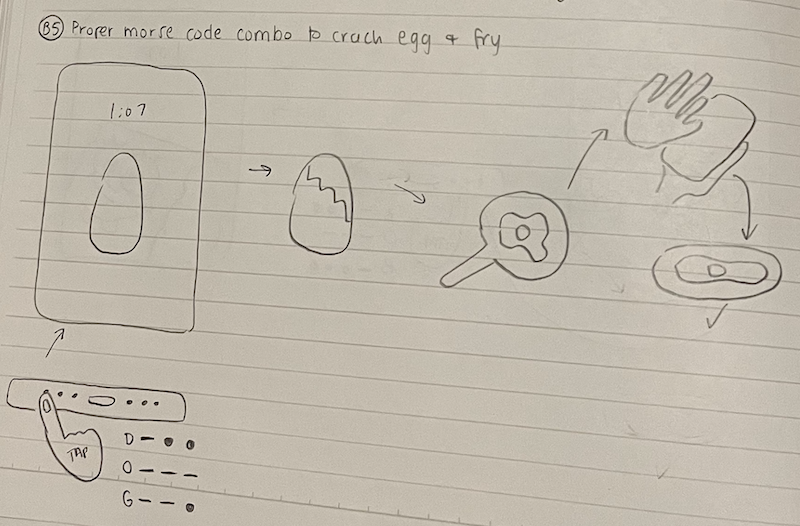 B5 Proper morse code combo to crach egg & fry
1:07
TAP
D — • •
O — — —
G — — •